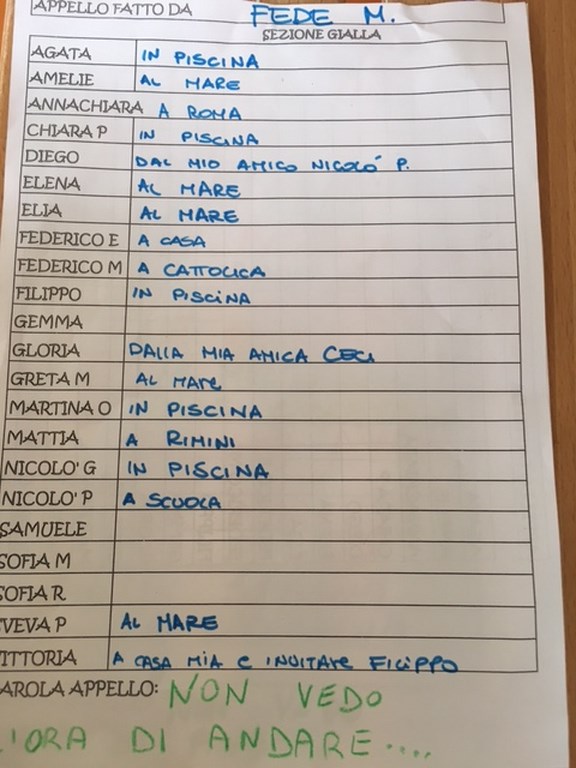 APPELLO FATTO DA FEDE M.
SEZIONE GIALLA
AGATA IN PISCINA
AMELIE AL MARE
ANNACHIARA A ROMA
CHIARA P IN PISCINA
DIEGO DAL MIO AMICO NICOLO' P.
ELENA AL MARE
ELIA AL MARE
FEDERICO E A CASA
FEDERICO M A CATTOLICA
FILIPPO IN PISCINA
GEMMA
GLORIA DALLA MIA AMICA CECI
GRETA M AL MARE
MARTINA O IN PISCINA
MATTIA A RIMINI
NICOLO' G IN PISCINA
NICOLO' P A SCUOLA
SAMUELE
SOFIA M
SOFIA R
VEVA P AL MARE
ITTORIA A CASA MIA E INVITARE FILIPPO
AROLA APPELLO: NON VEDO
L'ORA DI ANDARE....